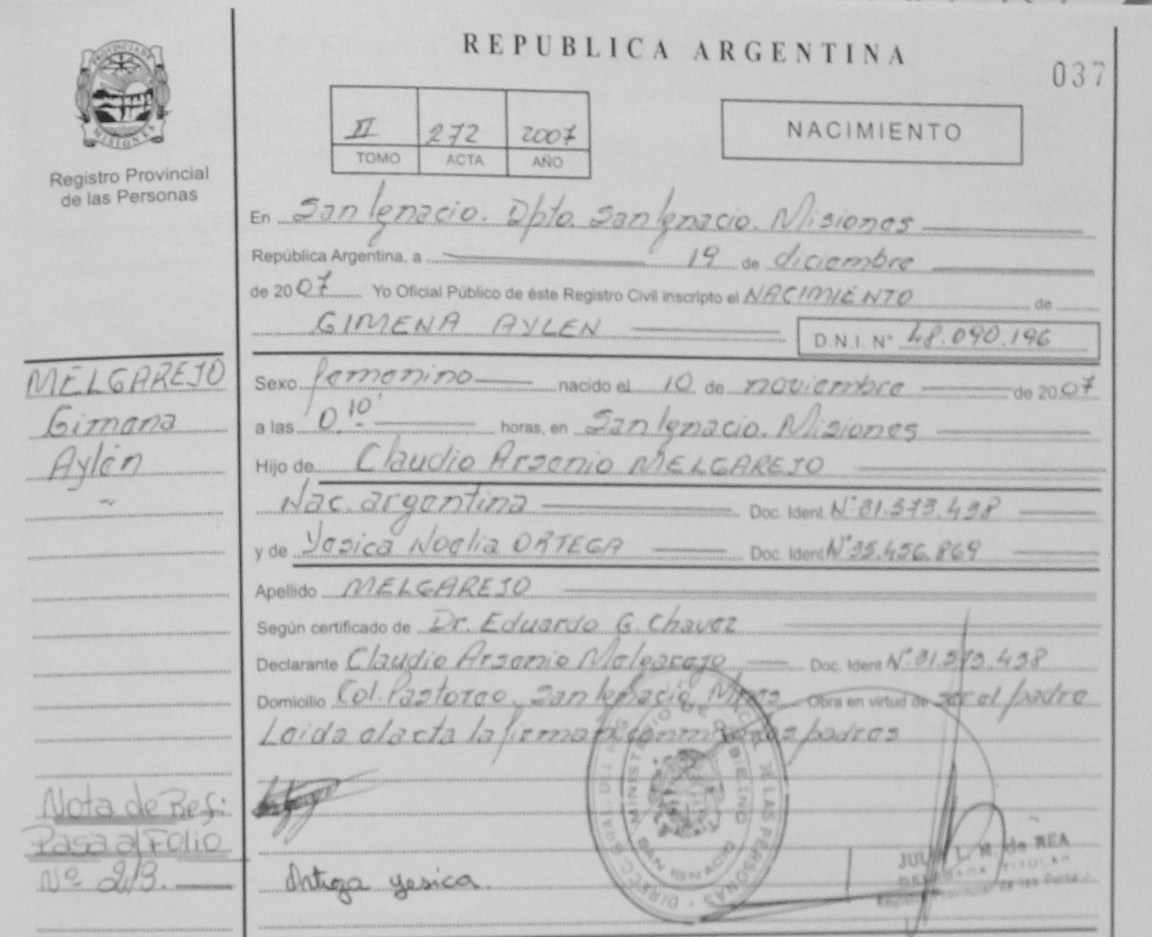 REPUBLICA ARGENTINA
037
PROVINCIA DE MISIONES
Registro Provincial
de las Personas
II 272 2007
TOMO ACTA AÑO
NACIMIENTO
En San Ignacio. Dpto. San Ignacio. Misiones
República Argentina, a 19 de diciembre
de 2007 Yo Oficial Público de éste Registro Civil inscripto el NACIMIENTO de
GIMENA AYLEN D.N.I. N° 48.090.196
MELGAREJO
Gimena
Aylén
Sexo femenino nacido el 10 de noviembre de 2007
a las 0.10' horas, en San Ignacio. Misiones
Hijo de Claudio Arsenio MELGAREJO
Nac. argentina Doc. Ident. N° 31.573.498
y de Yesica Noelia ORTEGA Doc. Ident N° 35.456.869
Apellido MELGAREJO
Según certificado de Dr. Eduardo G. Chavez
Declarante Claudio Arsenio Melgarejo Doc. Ident N° 31.573.498
Domicilio Col. Pastoreo, San Ignacio, Mnes Obra en virtud de ser el padre
Leida el acta la firman conmigo los padres
Nota de Ref:
Pasa al Folio
Nº 213.
Ortega yesica.
MINISTERIO DE GOBIERNO
SAN IGNACIO
L. M. de REA
DELEGADA TITULAR